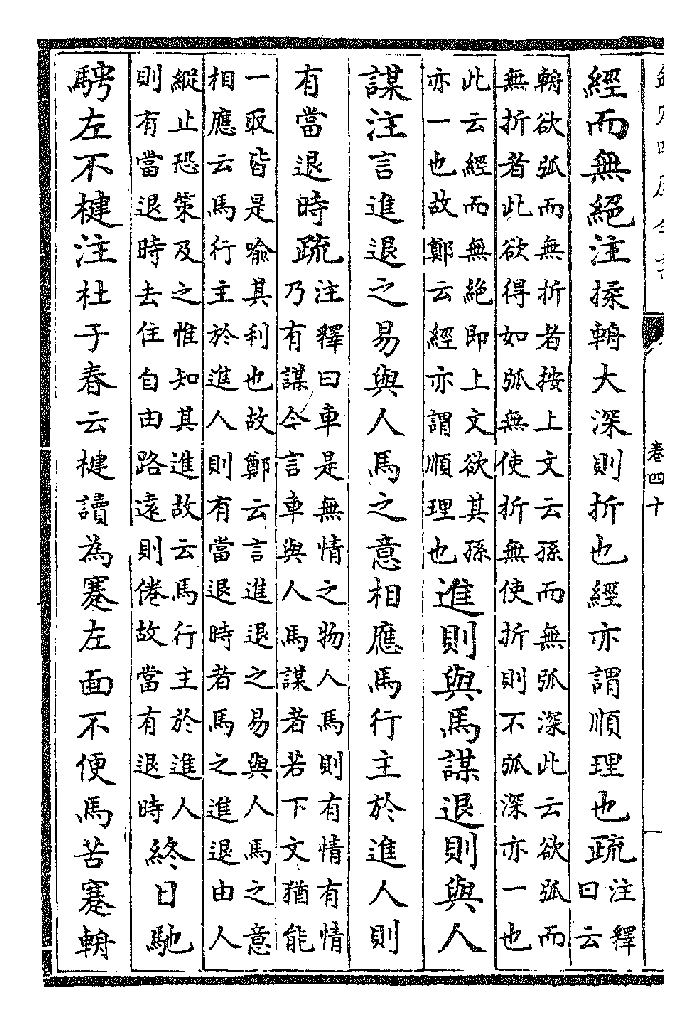 欽定四庫全書
卷四十
經而無絕注揉輈大深則折也經亦謂順理也疏注釋
曰云
輈欲弧而無折者按上文云孫而無弧深此云欲弧而
無折者此欲得如弧無使折無使折則不弧深亦一也
此云經而無絕即上文欲其孫
亦一也故鄭云經亦謂順理也進則與馬謀退則與人
謀注言進退之易與人馬之意相應馬行主於進人則
有當退時疏注釋曰車是無情之物人馬則有情有情
乃有謀今言車與人馬謀者若下文猶能
一取皆是喻其利也故鄭云言進退之易與人馬之意
相應云馬行主於進人則有當退時者馬之進退由人
縱止恐策及之惟知其進故云馬行主於進人
則有當退時去住自由路遠則倦故當有退時終日馳
騁左不楗注杜子春云楗讀為蹇左面不便馬苦蹇輈